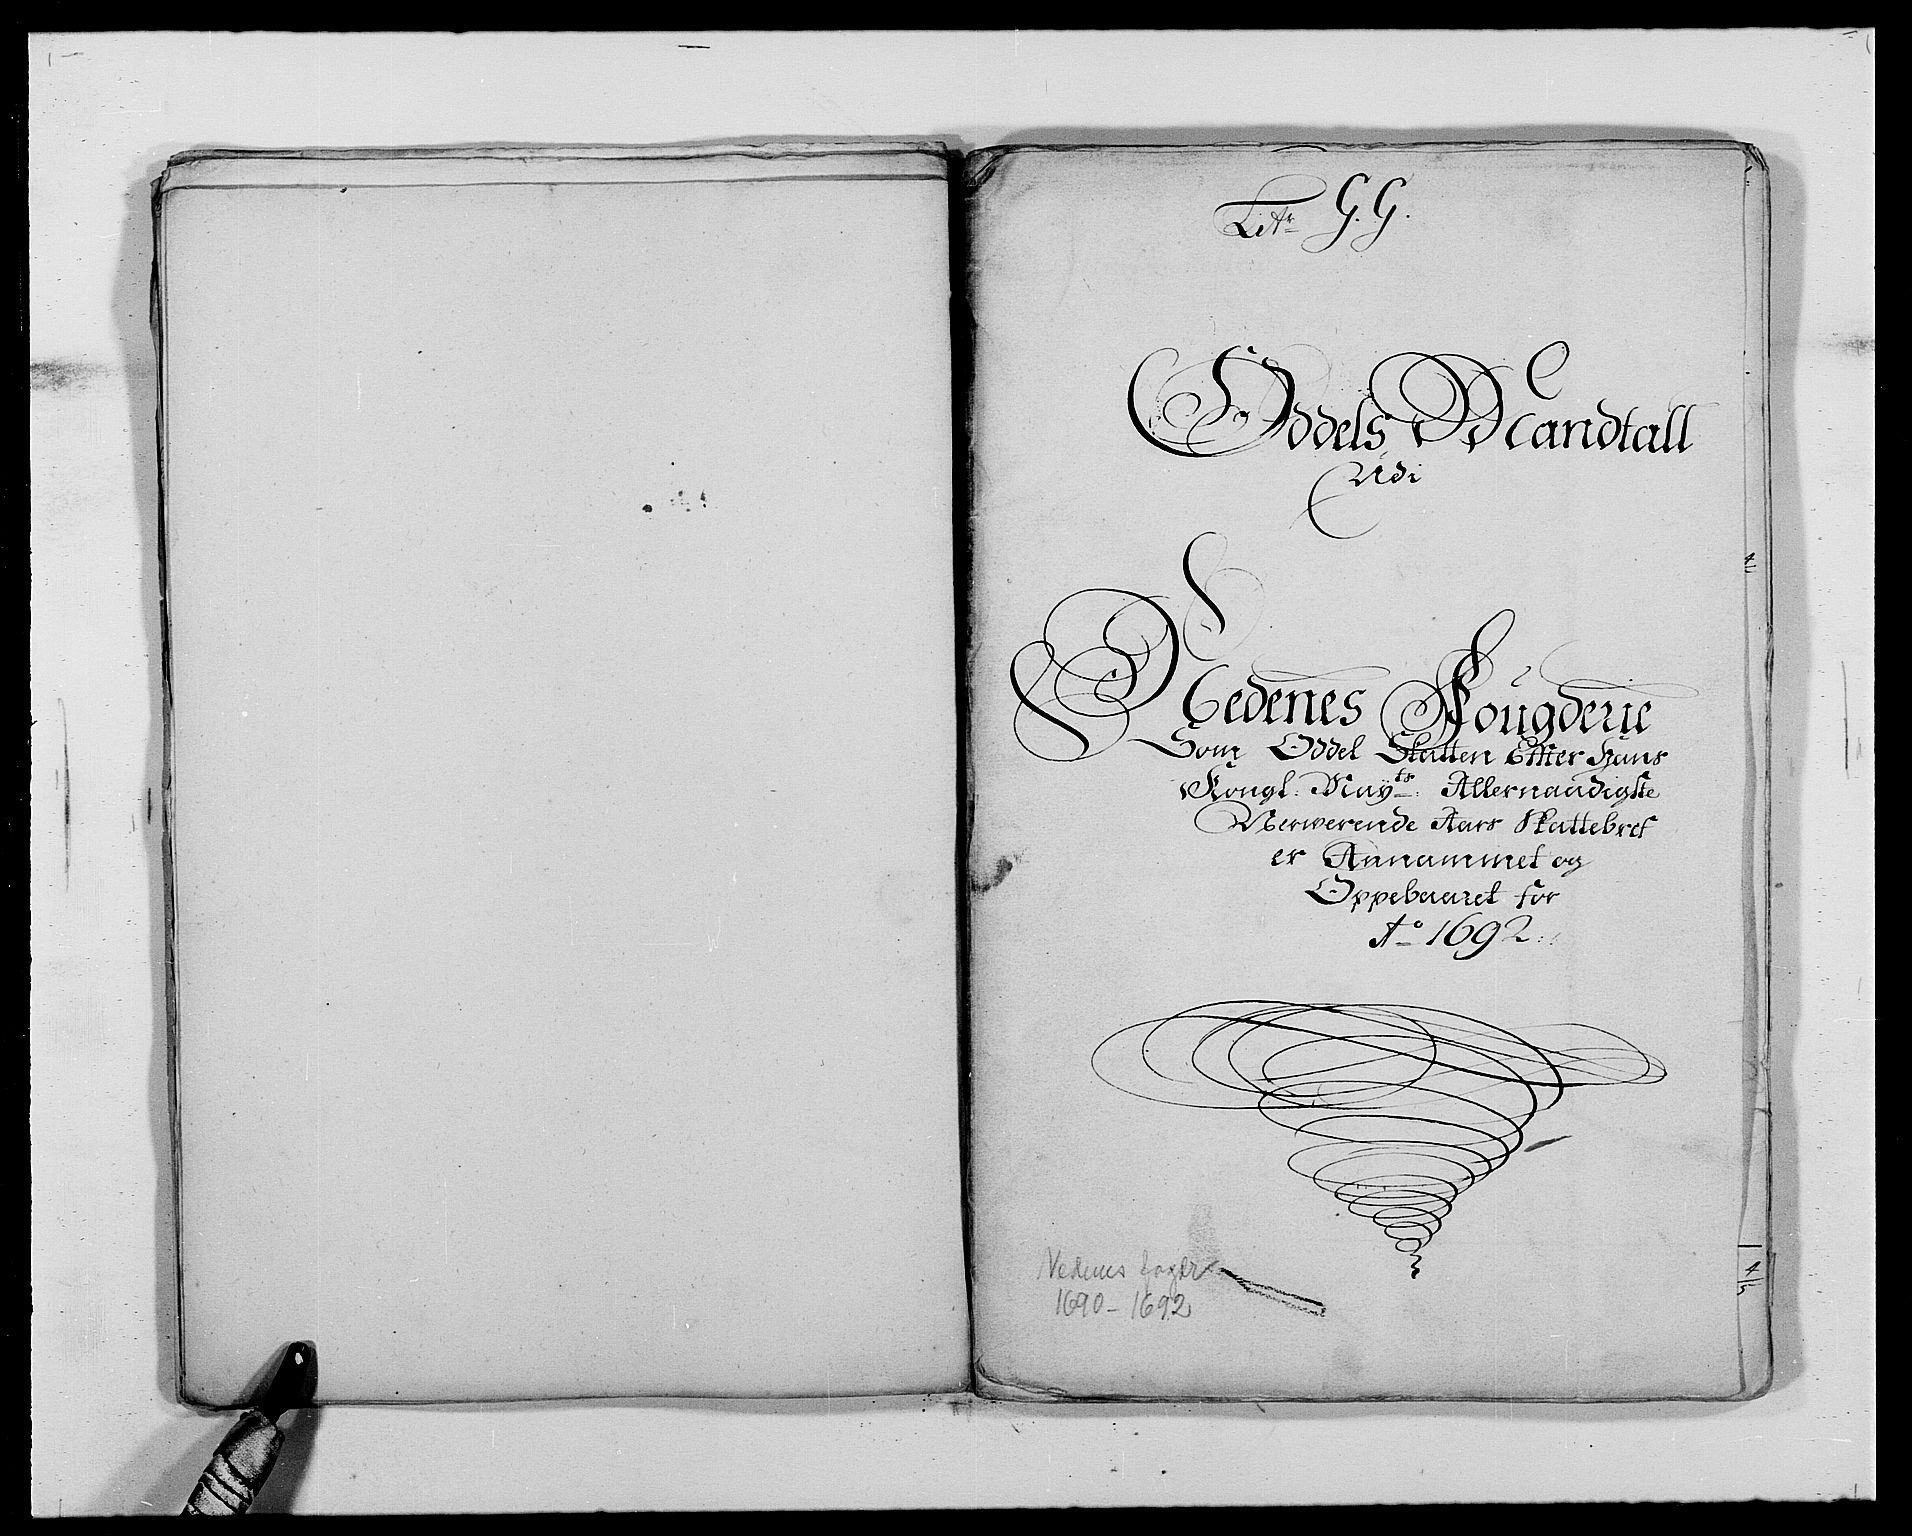 Litr G. G.
Oddels Mandtall
Udi
Nedenes Fougderie
Som Oddel Skatten Effter Hans
Kongl: Mayts: Allernaadigste
Nerwerende Aars Skattebref
er Annammet og
Oppebaaret for
Ao 1692
Nedenes fogdr
1690 - 1692